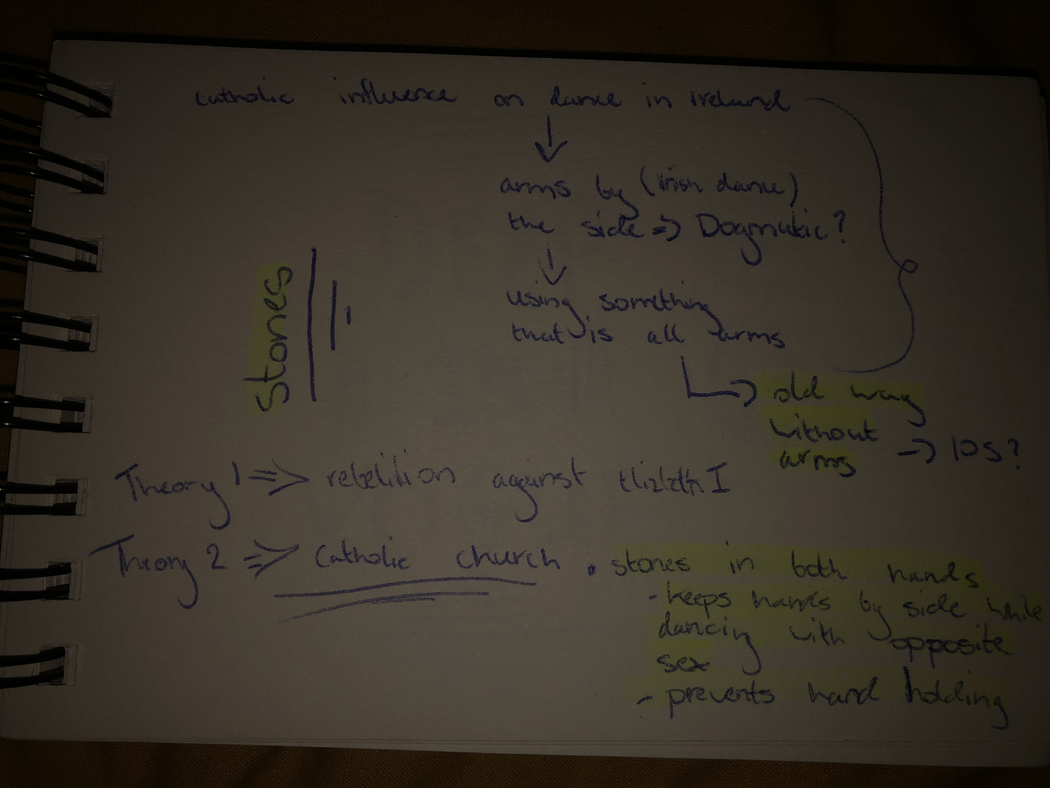 Catholic influence on dance in Ireland
arms by (Irish dance)
the side => Dogmatic?
using something
that is all arms
old way
without
arms
Stones
Theory 1 => rebelition against I
Theory 2 => Catholic church
. stones in both hands
- keeps hands by side while
dancing with opposite
sex
- prevents hand holding